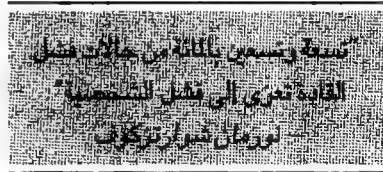 "تسعة وتسعين بالمائة من حالات فشل
القادة تعزى إلى فشل الشخصية"
– نورمان شوارتزكوف